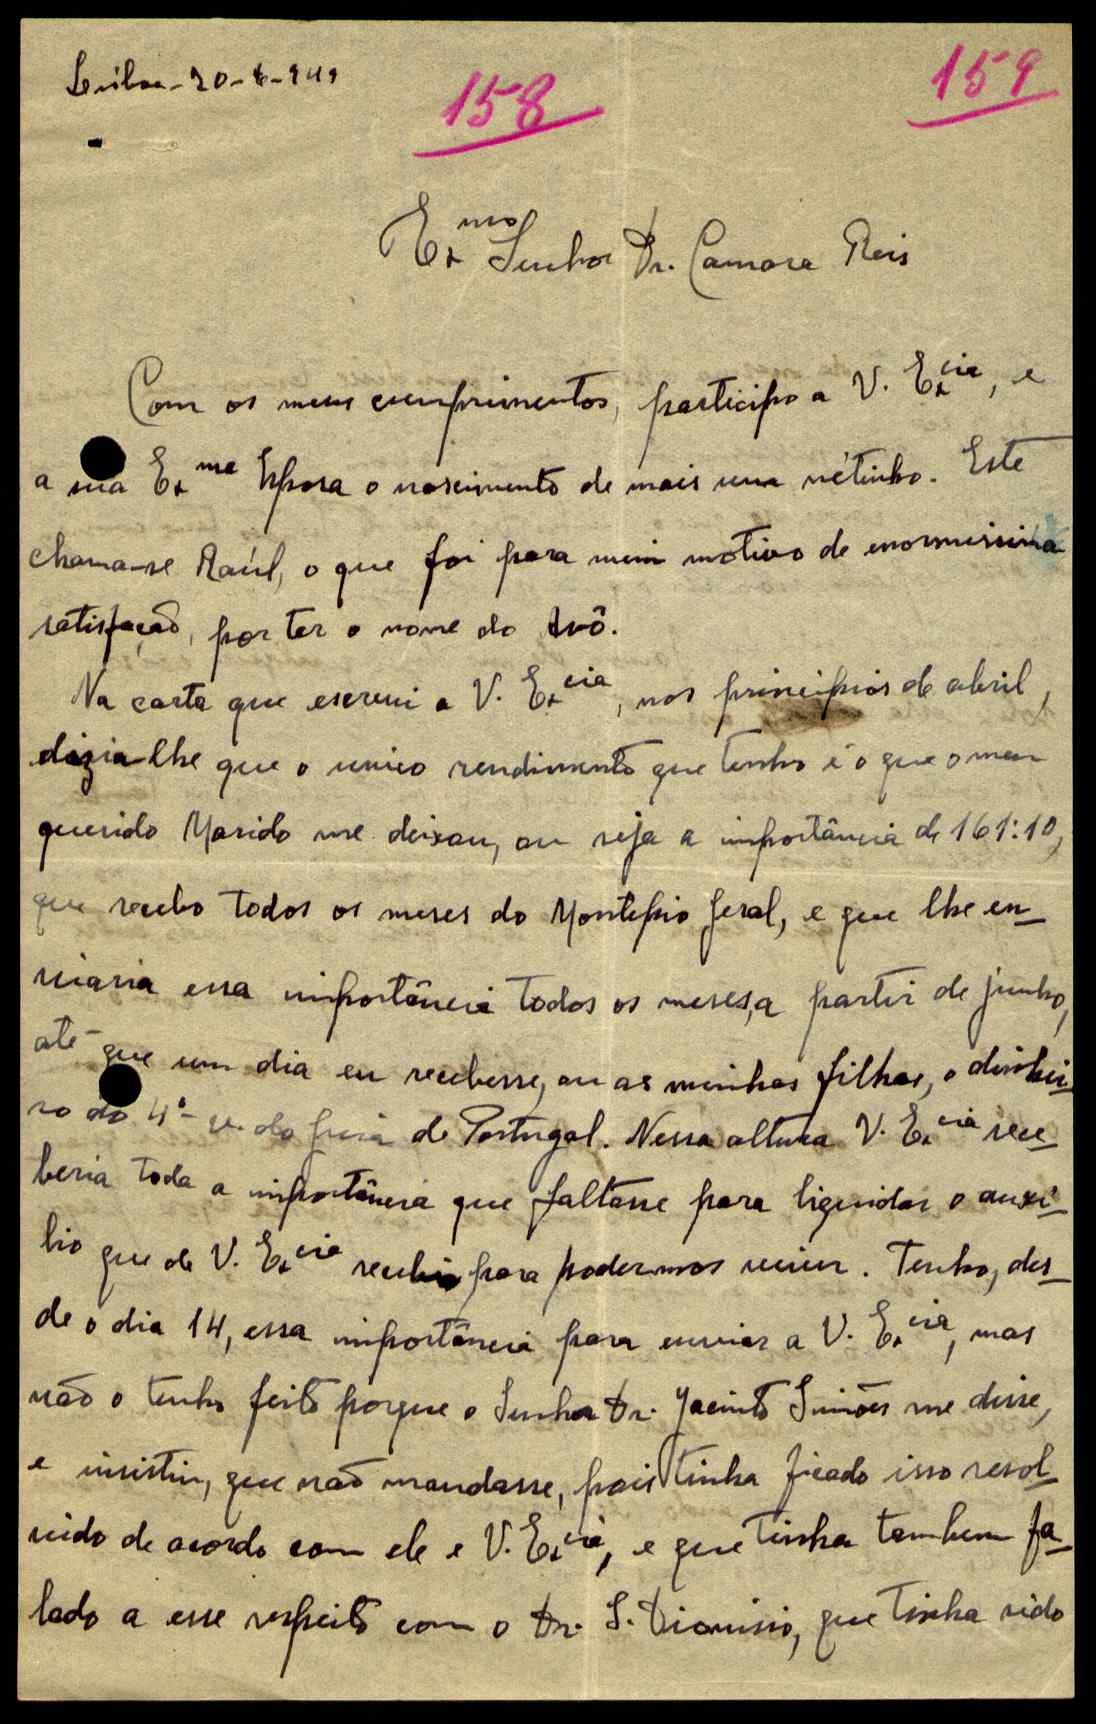 Lisboa - 20-6-949
158
159
Exmo Senhor Dr. Camara Reis
Com os meus cumprimentos, participo a V. Excia, e
a sua Exma Esposa o nascimento de mais um nétinho. Este
chama-se Raúl, o que foi para mim motivo de enormissima
satisfação, por ter o nome do Avô.
Na carta que escrevi a V. Excia, nos principios de abril,
dizia-lhe que o unico rendimento que tenho é o que o meu
querido Marido me deixou, ou seja a importância de 161:10,
que recebo todos os meses do Montepio Geral, e que lhe en-
viaria essa importância todos os meses, a partir de junho,
até que um dia eu recebesse, ou as minhas filhas, o dinhei-
ro do 4º de Portugal. Nessa altura V. Excia rece-
beria toda a importância que faltasse para liquidar o auxi-
lio que de V. Excia recebi para podermos viver. Tenho, des-
de o dia 14, essa importância para enviar a V. Excia, mas
não o tenho feito porque o Senhor Dr. Jacinto Simões me disse,
e insistiu, que não mandasse, pois tinha ficado isso resol-
vido de acordo com ele e V. Excia, e que tinha tambem fa-
lado a esse respeito com o Dr. S. Dionisio, que tinha sido